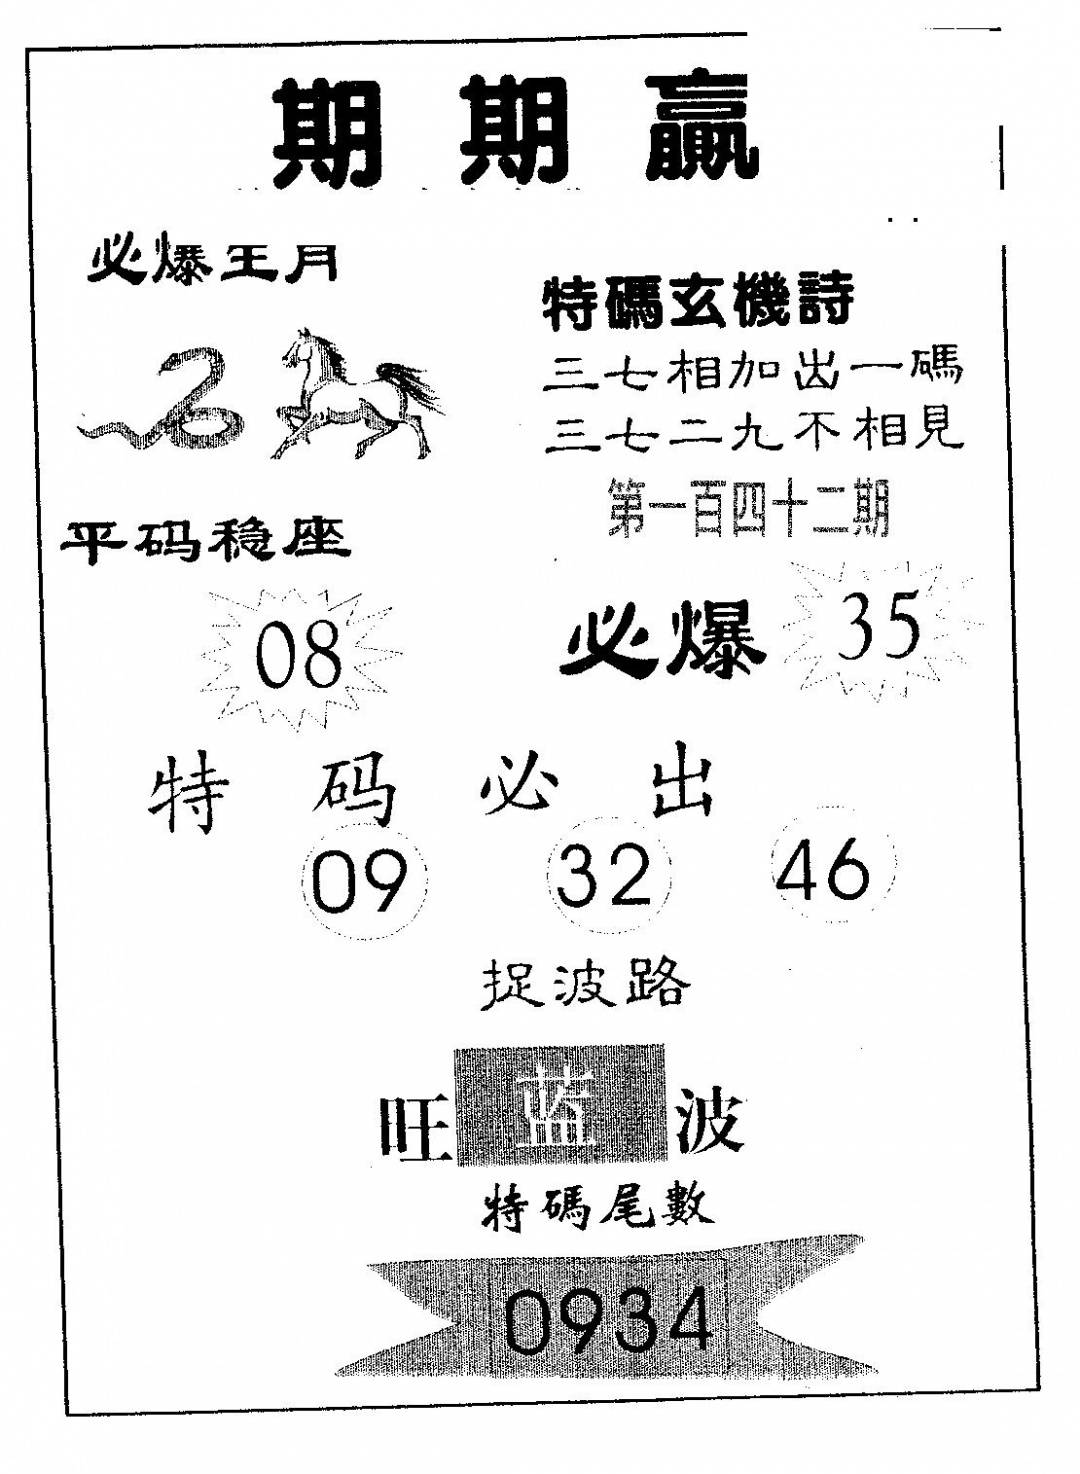 期期贏
必爆王月
特碼玄機詩
三七相加出一碼
三七二九不相見
第一百四十二期
平码稳座
08
必爆 35
特码必出
09 32 46
捉波路
旺蓝波
特碼尾數
0934